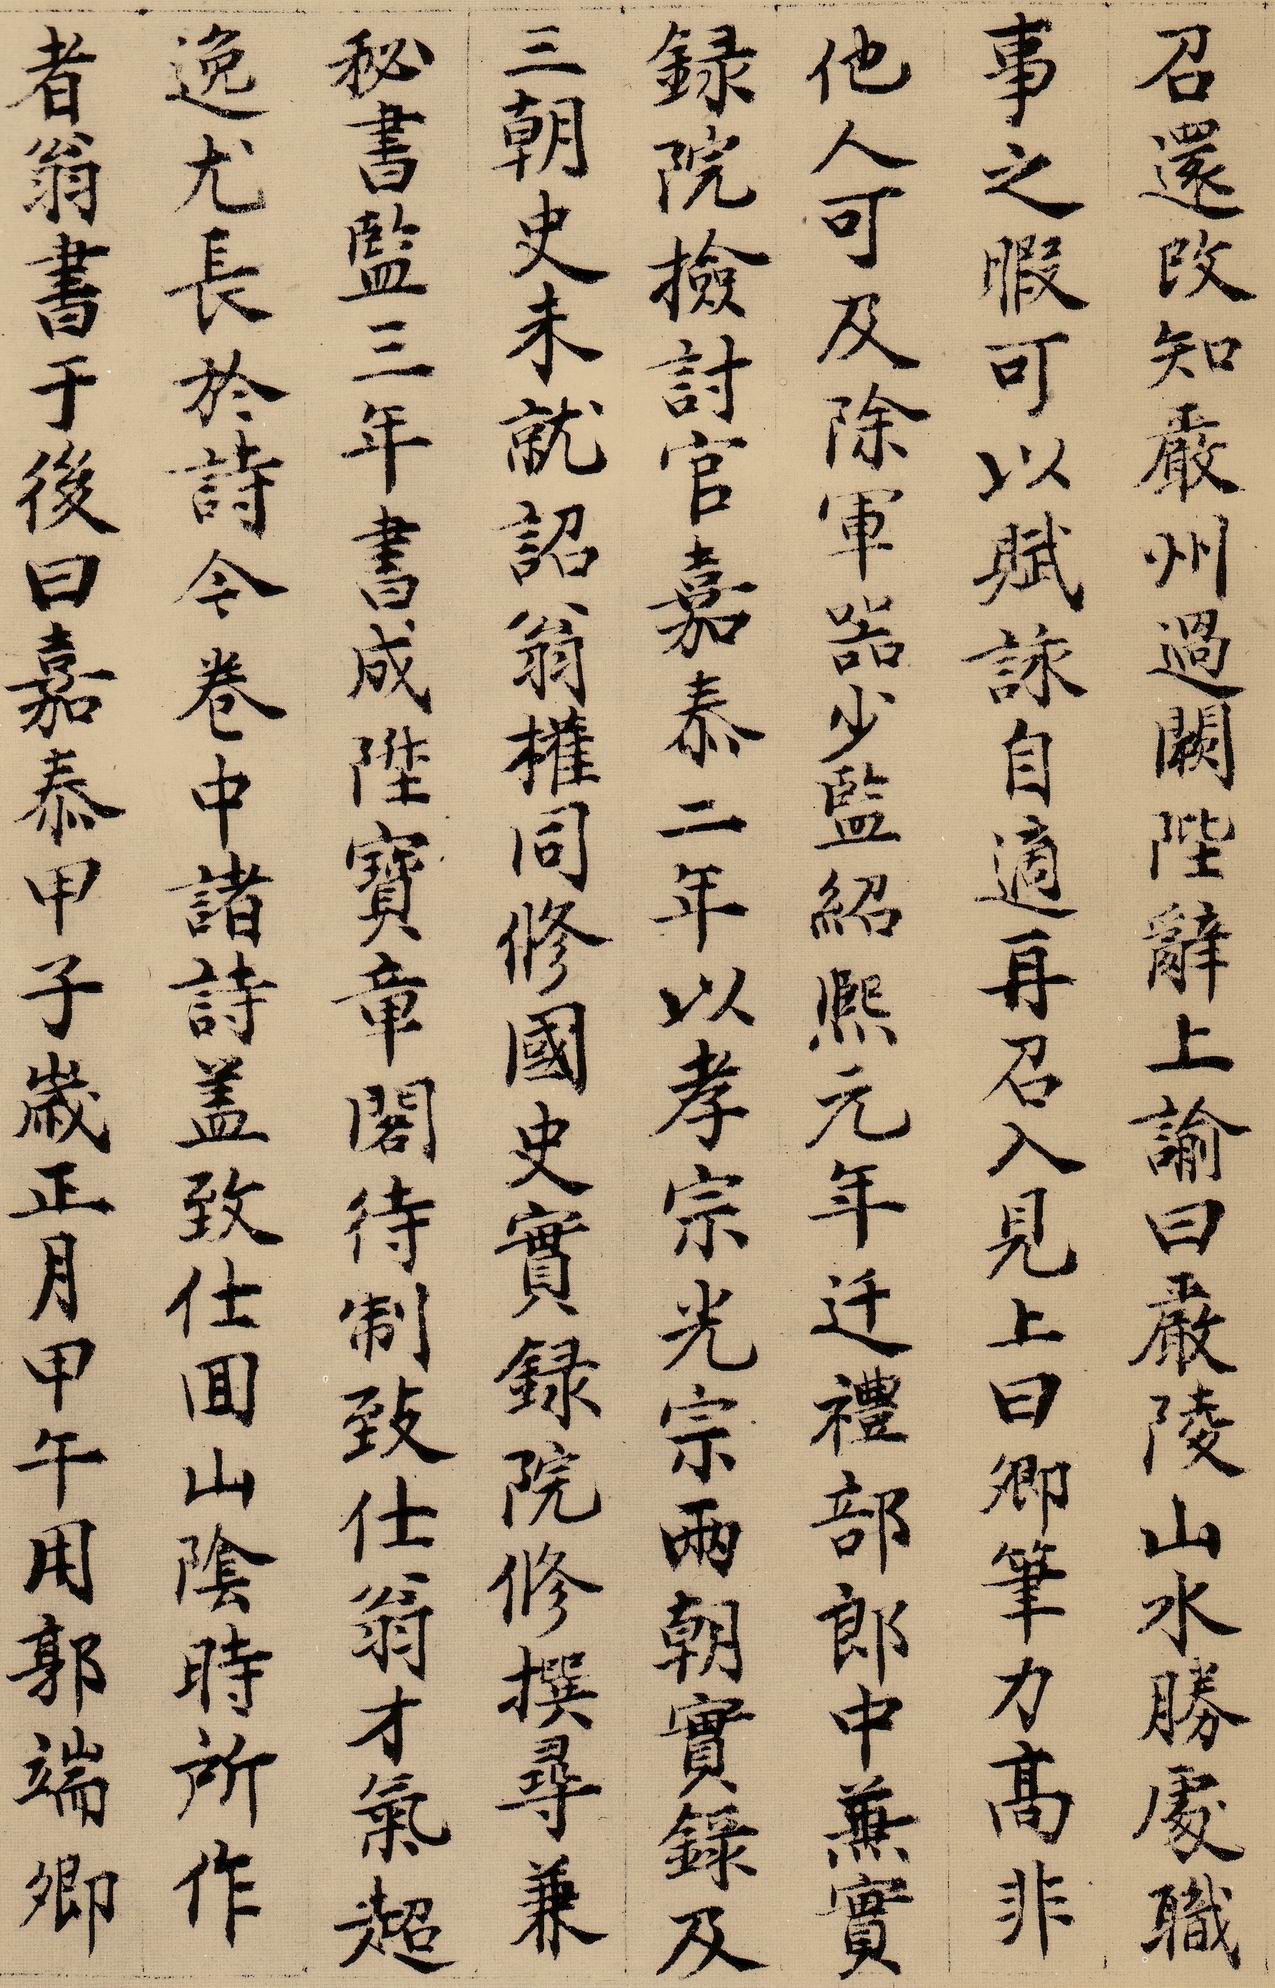 召還改知嚴州過闕陛辭上諭曰嚴陵山水勝處職
事之暇可以賦詠自適再召入見上曰卿筆力高非
他人可及除軍器少監紹熙元年迁禮部郎中兼實
録院撿討官嘉泰二年以孝宗光宗兩朝實録及
三朝史未就詔翁權同脩國史實録院脩撰尋兼
秘書監三年書成陞寶章閣待制致仕翁才氣超
逸尤長於詩今卷中諸詩盖致仕囬山陰時所作
者翁書于後曰嘉泰甲子歲正月甲午用郭端卿